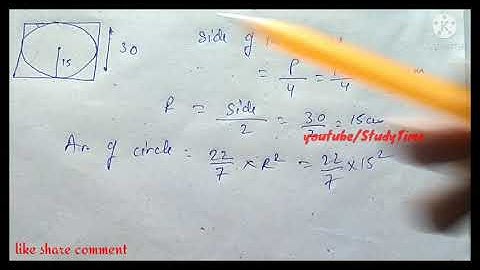 30
15
Side of
= P/4 = 1/4 m
R = Side/2 = 30/2 = 15cm
youtube/StudyTime
Ar of circle = 22/7 × R² = 22/7 × 15²
like share comment